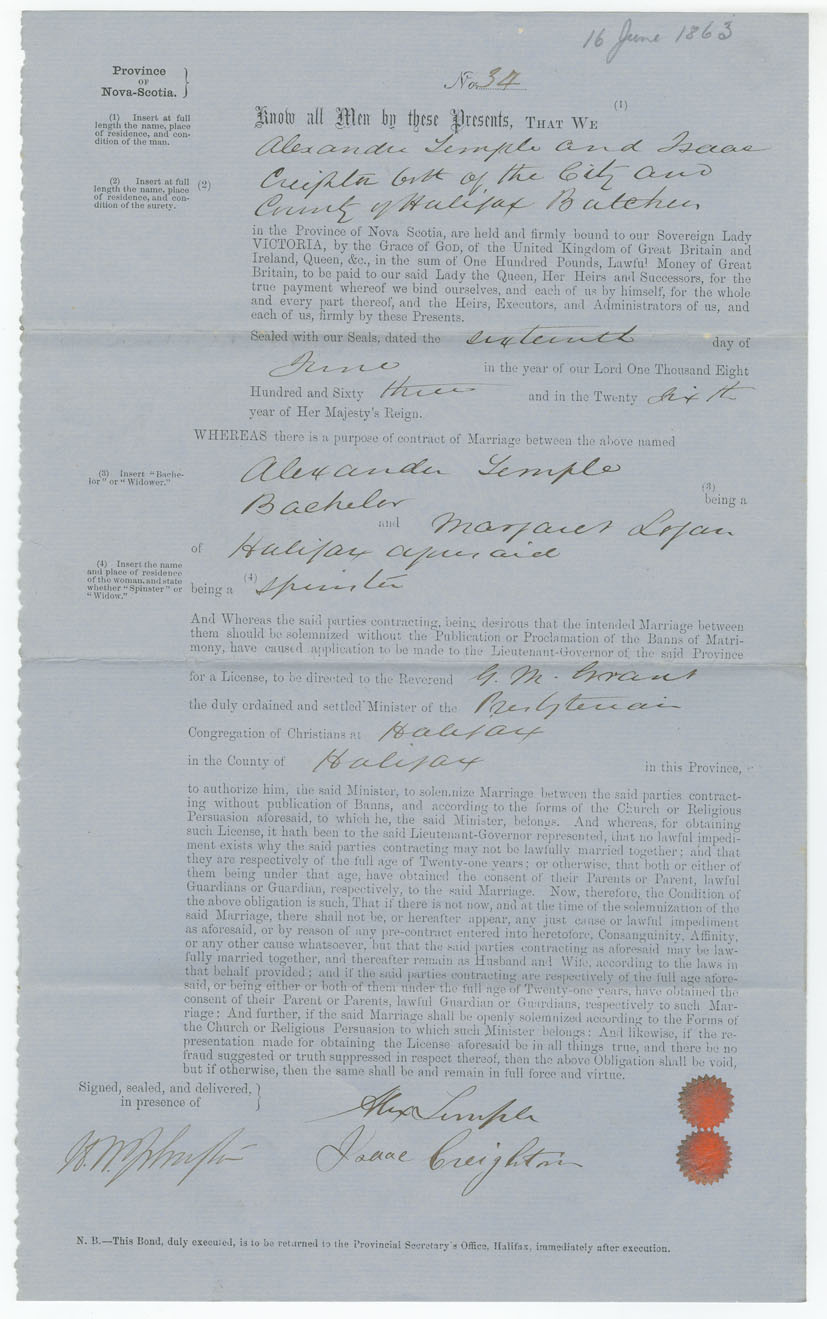 16 June 1863
Province
OF
Nova-Scotia.
No. 34
(1) Insert at full
length the name, place
of residence, and con-
dition of the man.
(1)
Know all Men by these Presents, THAT WE
Alexander Temple and Isaac
(2) Insert at full
length the name, place
of residence, and con-
dition of the surety.
(2)
Creighton both of the City and
County of Halifax Butchers
in the Province of Nova Scotia, are held and firmly bound to our Sovereign Lady
VICTORIA, by the Grace of GOD, of the United Kingdom of Great Britain and
Ireland, Queen, &c., in the sum of One Hundred Pounds, Lawful Money of Great
Britain, to be paid to our said Lady the Queen, Her Heirs and Successors, for the
true payment whereof we bind ourselves, and each of us by himself, for the whole
and every part thereof, and the Heirs, Executors, and Administrators of us, and
each of us, firmly by these Presents.
Sealed with our Seals, dated the sixteenth day of
June in the year of our Lord One Thousand Eight
Hundred and Sixty three and in the Twenty sixth
year of Her Majesty's Reign.
WHEREAS there is a purpose of contract of Marriage between the above named
(3) Insert "Bache-
lor" or "Widower."
Alexander Temple
(3)
Bachelor being a
and Margaret Logan
of Halifax aforesaid
(4) Insert the name
and place of residence
of the woman, and state
whether "Spinster" or
"Widow."
being a (4) Spinster
And Whereas the said parties contracting, being desirous that the intended Marriage between
them should be solemnized without the Publication or Proclamation of the Banns of Matri-
mony, have caused application to be made to the Lieutenant-Governor of the said Province
for a License, to be directed to the Reverend G. M. Grant
the duly ordained and settled Minister of the Presbyterian
Congregation of Christians at Halifax
in the County of Halifax in this Province,
to authorize him, the said Minister, to solemnize Marriage between the said parties contract-
ing without publication of Banns, and according to the forms of the Church or Religious
Persuasion aforesaid, to which he, the said Minister, belongs. And whereas, for obtaining
such License, it hath been to the said Lieutenant-Governor represented, that no lawful impedi-
ment exists why the said parties contracting may not be lawfully married together; and that
they are respectively of the full age of Twenty-one years; or otherwise, that both or either of
them being under that age, have obtained the consent of their Parents or Parent, lawful
Guardians or Guardian, respectively, to the said Marriage. Now, therefore, the Condition of
the above obligation is such, That if there is not now, and at the time of the solemnization of the
said Marriage, there shall not be, or hereafter appear, any just cause or lawful impediment
as aforesaid, or by reason of any pre-contract entered into heretofore, Consanguinity, Affinity,
or any other cause whatsoever, but that the said parties contracting as aforesaid may be law-
fully married together, and thereafter remain as Husband and Wife, according to the laws in
that behalf provided; and if the said parties contracting are respectively of the full age afore-
said, or being either or both of them under the full age of Twenty-one years, have obtained the
consent of their Parent or Parents, lawful Guardian or Guardians, respectively to such Mar-
riage: And further, if the said Marriage shall be openly solemnized according to the Forms of
the Church or Religious Persuasion to which such Minister belongs: And likewise, if the re-
presentation made for obtaining the License aforesaid be in all things true, and there be no
fraud suggested or truth suppressed in respect thereof, then the above Obligation shall be void,
but if otherwise, then the same shall be and remain in full force and virtue.
Signed, sealed, and delivered,
in presence of
Alex Temple
H. W. Johnston
Isaac Creighton
N. B.—This Bond, duly executed, is to be returned to the Provincial Secretary's Office, Halifax, immediately after execution.